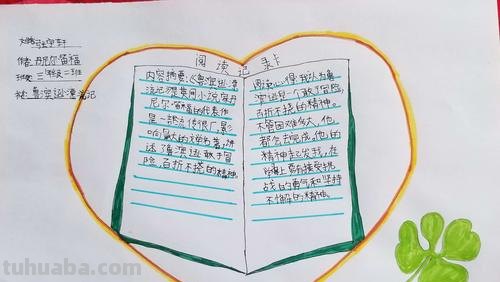 作者:丹尼尔笛福
班级:三年级二班
书名:鲁滨逊漂流记
阅读记录卡
内容摘要:《鲁滨逊漂
流记》是英国小说家丹
尼尔笛福的代表作
是一部流传很广,影
响最大的文学名著。讲
述了鲁滨逊敢于冒
险,百折不挠的精神
阅读心得:我认为鲁
滨逊是一个敢于冒险,
百折不挠的精神。
不管困难多大,他
都会去完成。他的
精神
战的勇气和坚持
不懈的精神。
tuhuaba.com